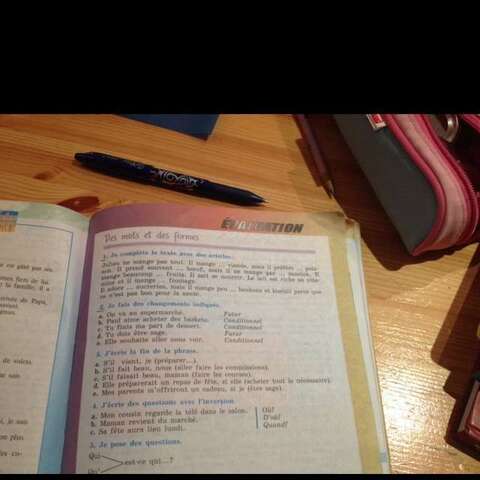 ÉVALUATION
Des mots et des formes
1. Je complète le texte avec des articles.
Julien ne mange pas tout. Il mange ... viande, mais il préfère ... pois-
son. Il prend souvent ... bœuf, mais il ne mange pas ... mouton. Il
mange beaucoup ... fruits. Il sait se nourrir. Le lait est riche en vita-
mine et il mange ... fromage.
Il adore ... sucreries, mais il mange peu ... bonbons et biscuits parce que
ce n'est pas bon pour la santé.
2. Je fais des changements indiqués.
a. On va au supermarché. Futur
b. Paul aime acheter des baskets. Conditionnel
c. Tu finis ma part de dessert. Conditionnel
d. Tu dois être sage. Futur
e. Elle souhaite aller nous voir. Conditionnel
3. J'écris la fin de la phrase.
a. S'il vient, je (préparer...).
b. S'il fait beau, nous (aller faire les commissions).
c. S'il faisait beau, maman (faire les courses).
d. Elle préparerait un repas de fête, si elle (acheter tout le nécessaire).
e. Mes parents m'offriront un cadeau, si je (être sage).
4. J'écris des questions avec l'inversion.
a. Mon cousin regarde la télé dans le salon. Où?
b. Maman revient du marché. D'où?
c. Sa fête aura lieu lundi. Quand?
5. Je pose des questions.
Qui
est-ce qui...?
Qu'